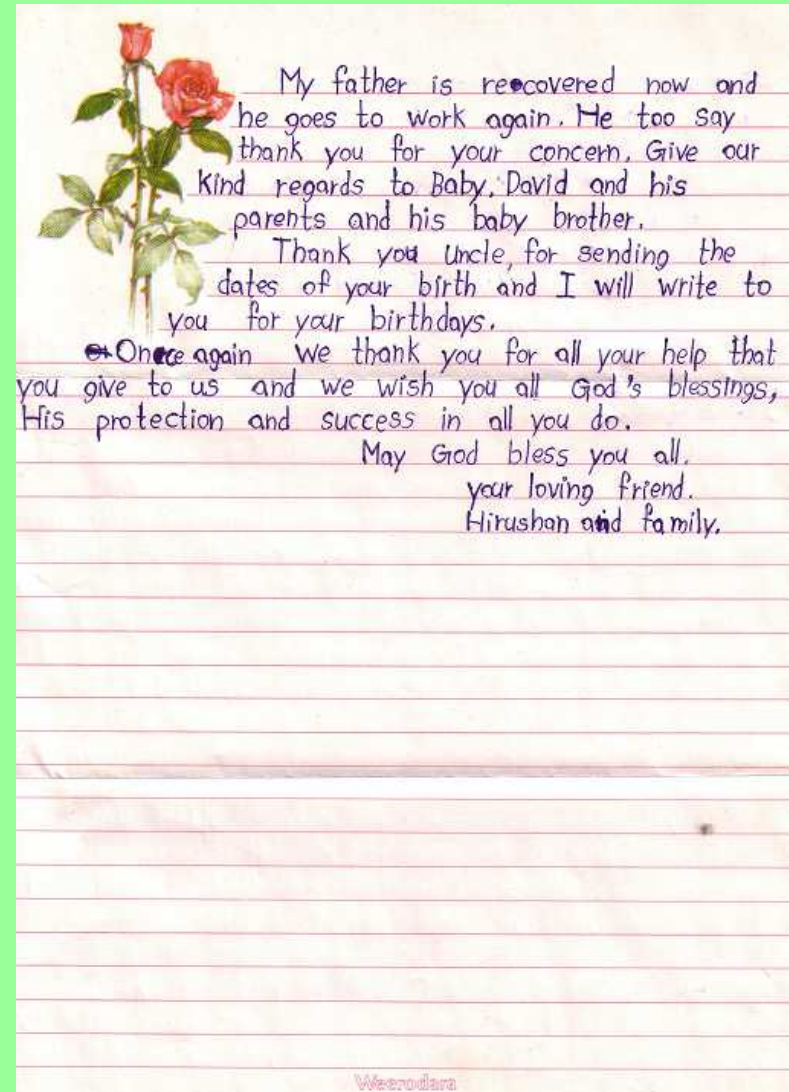 My father is recovered now and
he goes to work again. He too say
thank you for your concern. Give our
kind regards to Baby, David and his
parents and his baby brother.
Thank you Uncle, for sending the
dates of your birth and I will write to
you for your birthdays.
Once again we thank you for all your help that
you give to us and we wish you all God's blessings,
His protection and success in all you do.
May God bless you all.
your loving friend.
Hirushan and family.
Weerodara